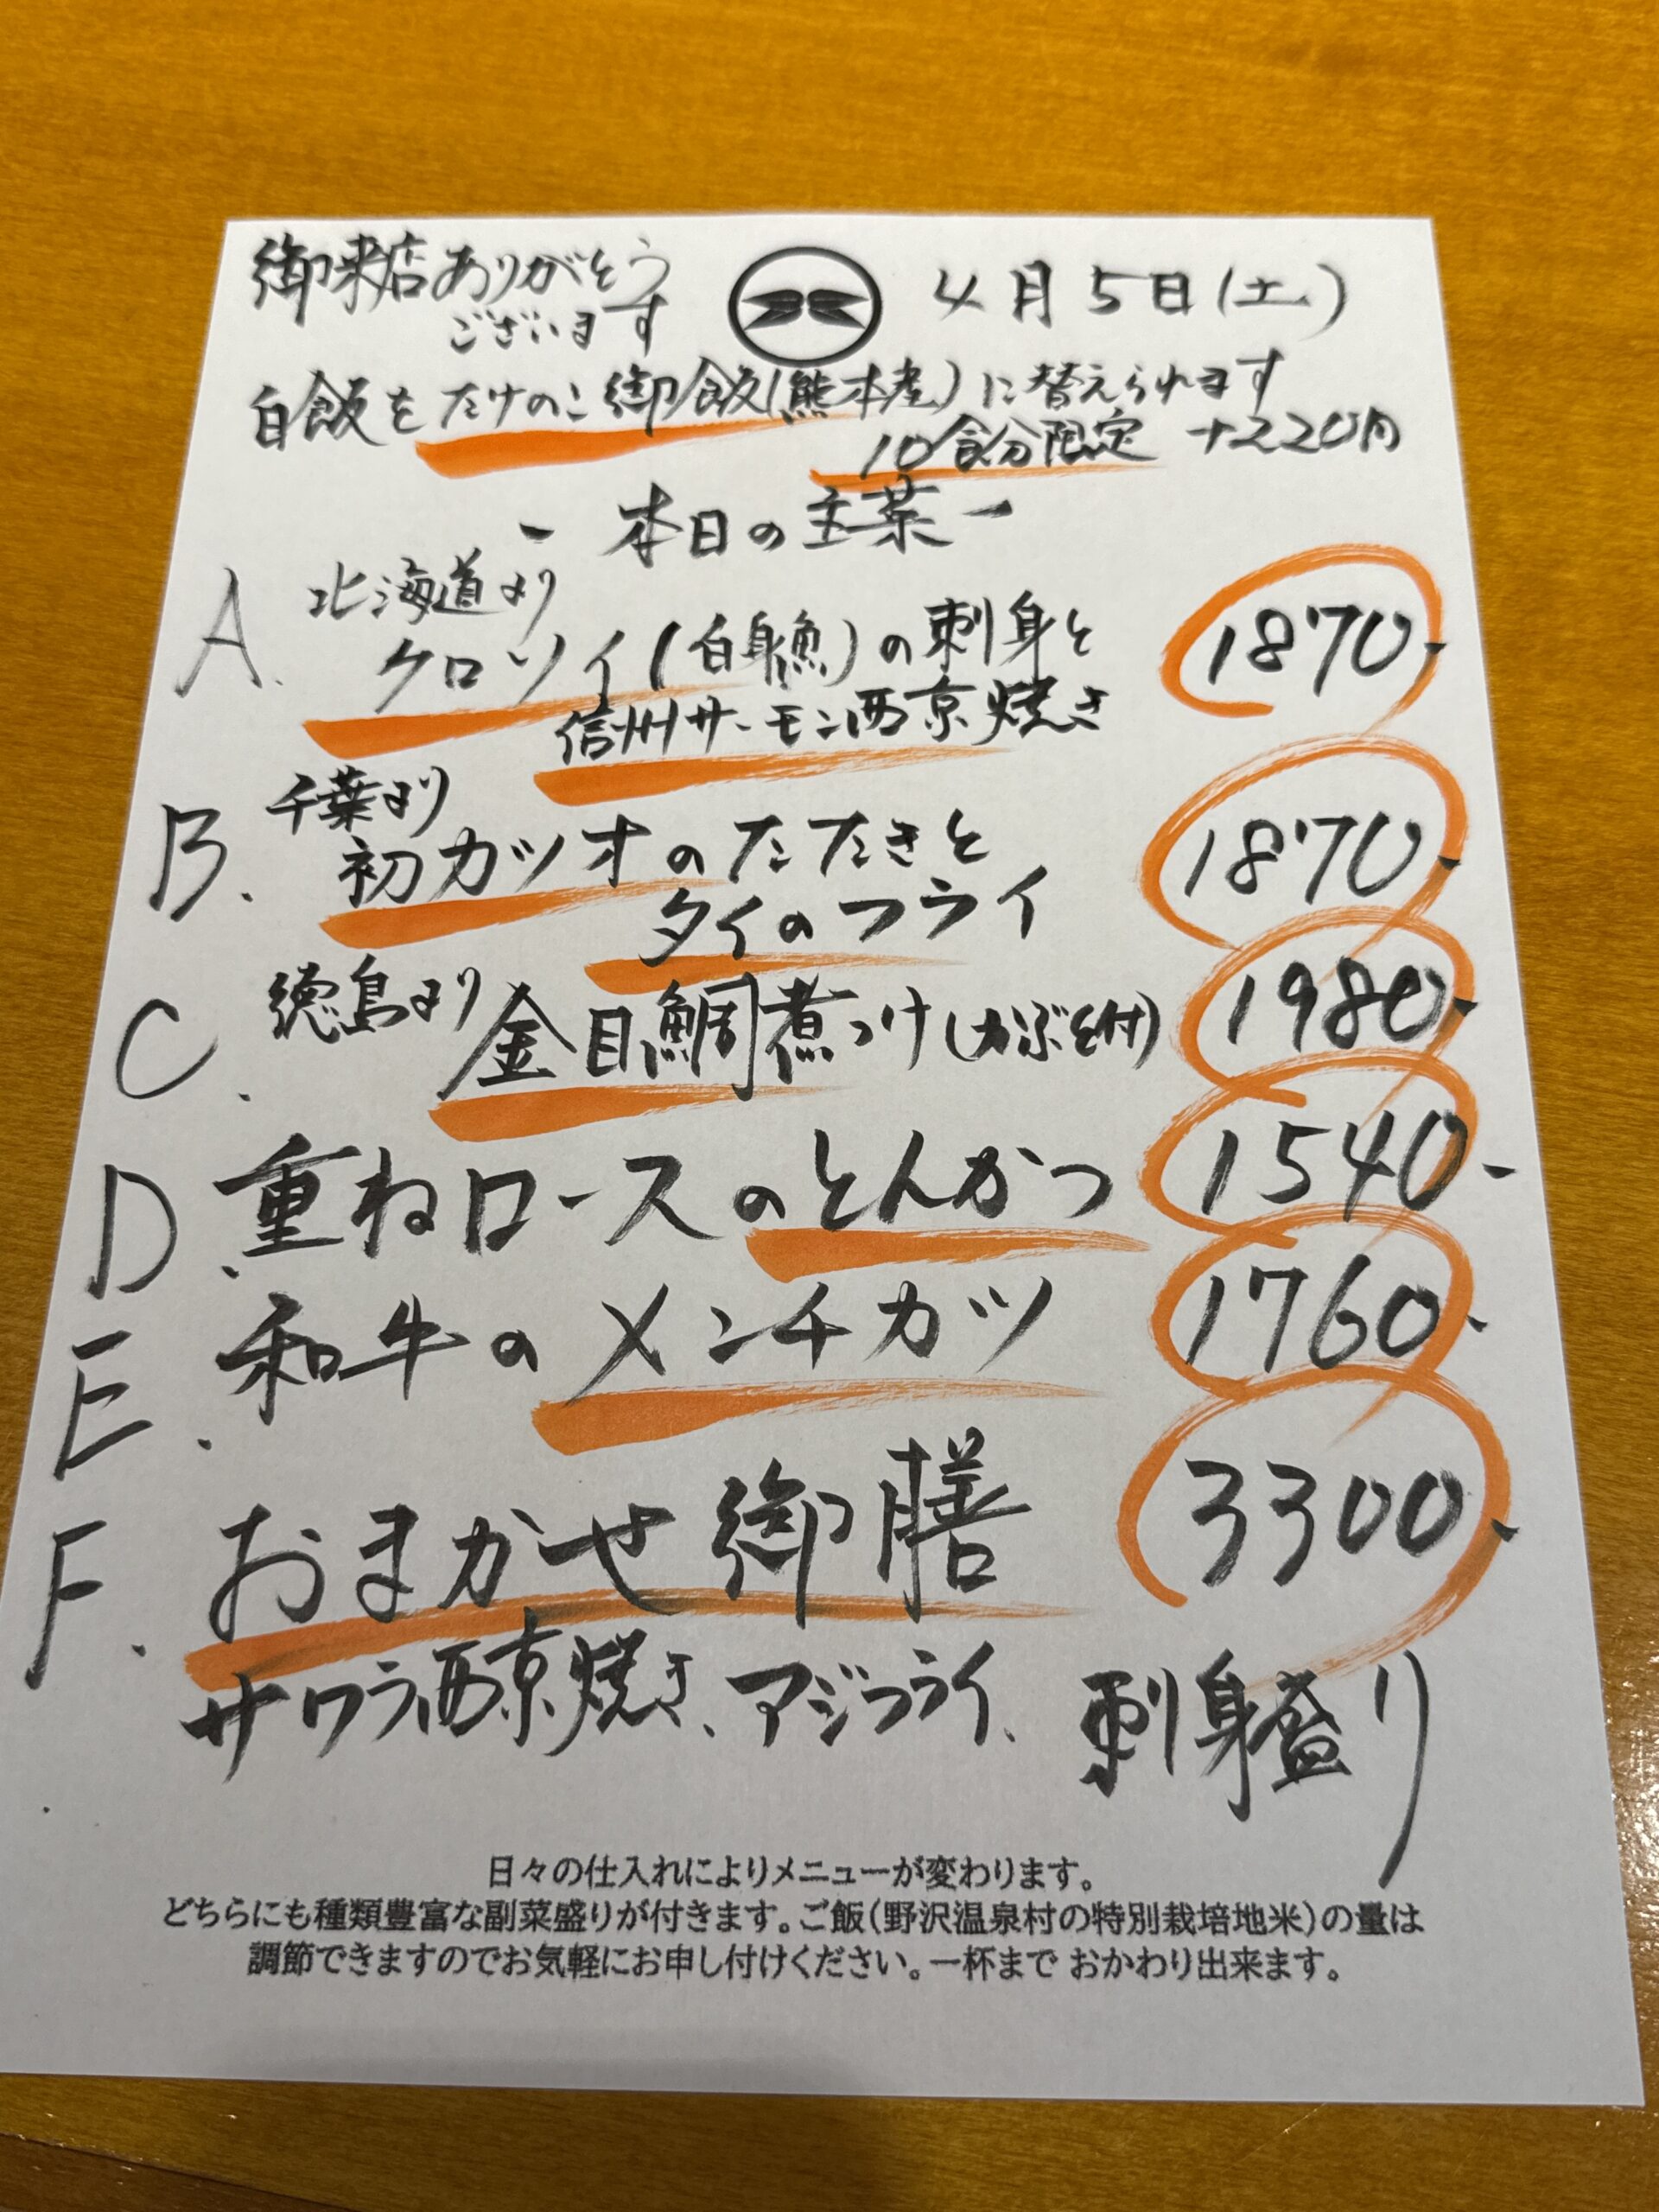 御来店ありがとう
ございます
4月5日(土)
白飯をたけのこ御飯(熊本産)に替えられます
10食分限定 +220円
- 本日の主菜 -
A. 北海道より
クロソイ(白身魚)の刺身と
信州サーモン西京焼き
1870-
B. 千葉より
初カツオのたたきと
タイのフライ
1870-
C. 徳島より 金目鯛煮つけ(かぶと付) 1980-
D. 重ねロースのとんかつ 1540-
E. 和牛のメンチカツ 1760-
F. おまかせ御膳 3300-
サワラ西京焼き、アジフライ、刺身盛り
日々の仕入れによりメニューが変わります。
どちらにも種類豊富な副菜盛りが付きます。ご飯(野沢温泉村の特別栽培地米)の量は
調節できますのでお気軽にお申し付けください。一杯まで おかわり出来ます。